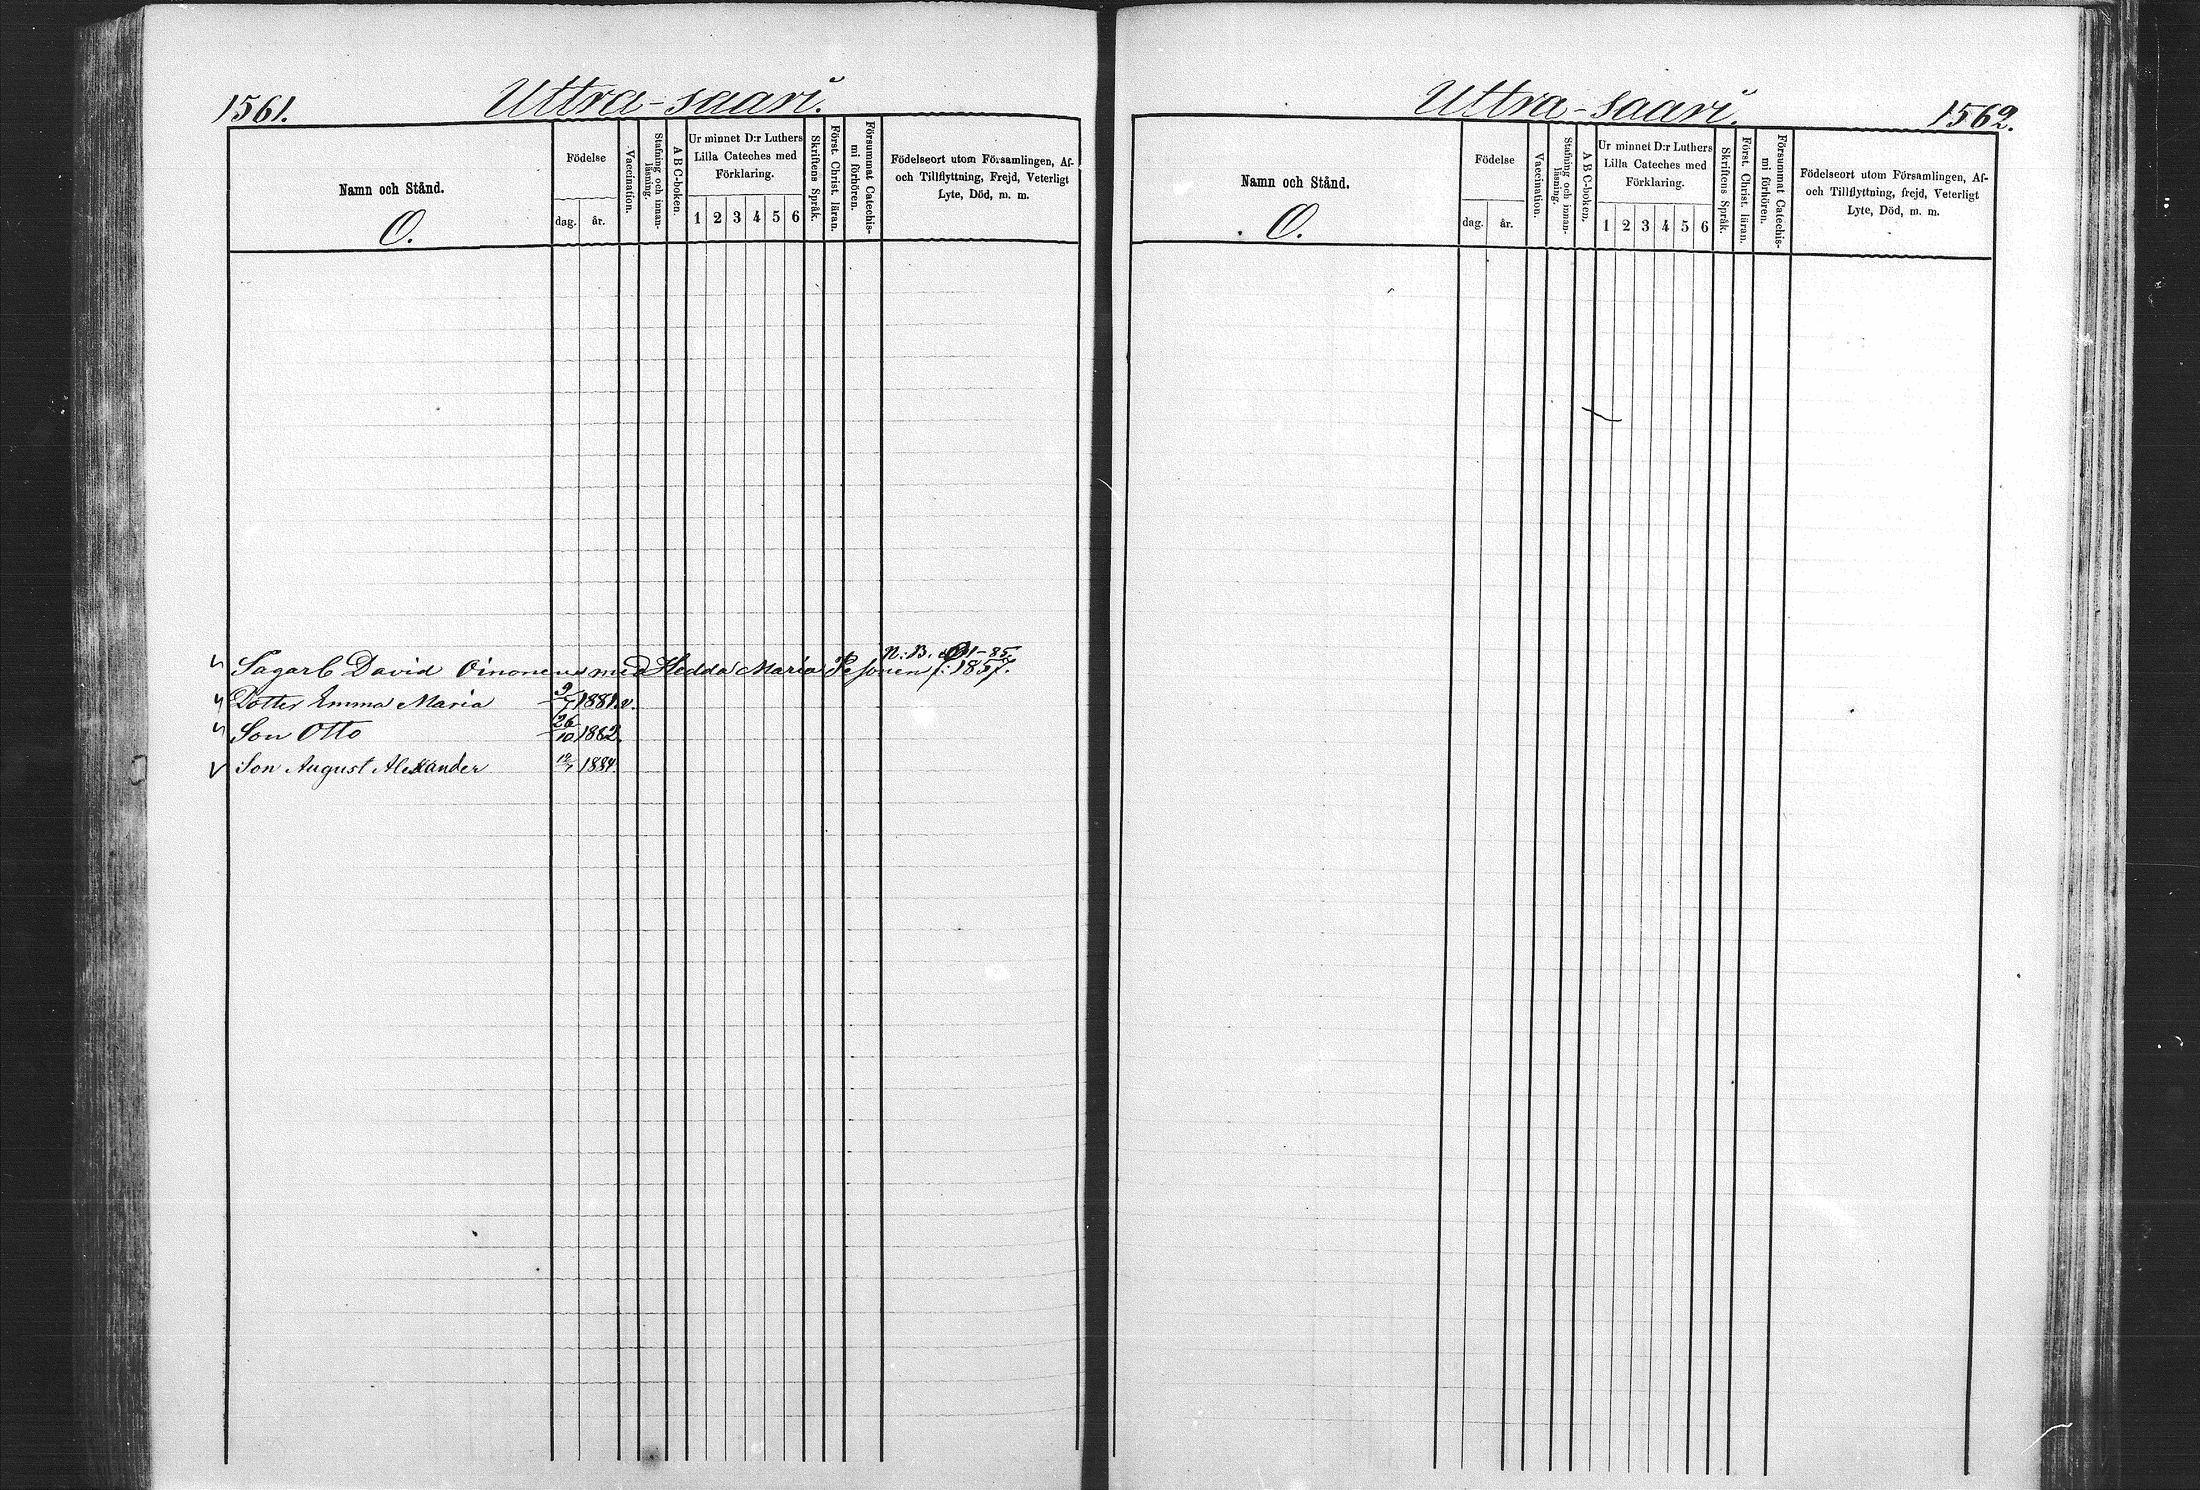 1561.
Uttra-saari.
Namn och Stånd.
O.
Födelse
dag. år.
Vaccination.
Stafning och innan-
läsning.
A B C-boken.
Ur minnet D:r Luthers
Lilla Cateches med
Förklaring.
1 2 3 4 5 6
Skriftens Språk.
Först. Christ. läran.
Försummat Catechis-
mi förhören.
Födelseort utom Församlingen, Af-
och Tillflyttning, Frejd, Veterligt
Lyte, Död, m. m.
N: B. 81-85.
Sagarb David Oinonens med Hedda Maria Pesonen f: 1857.
Dotter Emma Maria 1881. v.
Son Otto 26/10 1882.
Son August Alexander 1884.
Uttra-saari.
1562.
Namn och Stånd.
O.
Födelse
dag. år.
Vaccination.
Stafning och innan-
läsning.
A B C-boken.
Ur minnet D:r Luthers
Lilla Cateches med
Förklaring.
1 2 3 4 5 6
Skriftens Språk.
Först. Christ. läran.
Försummat Catechis-
mi förhören.
Födelseort utom Församlingen, Af-
och Tillflyttning, frejd, Veterligt
Lyte, Död, m. m.